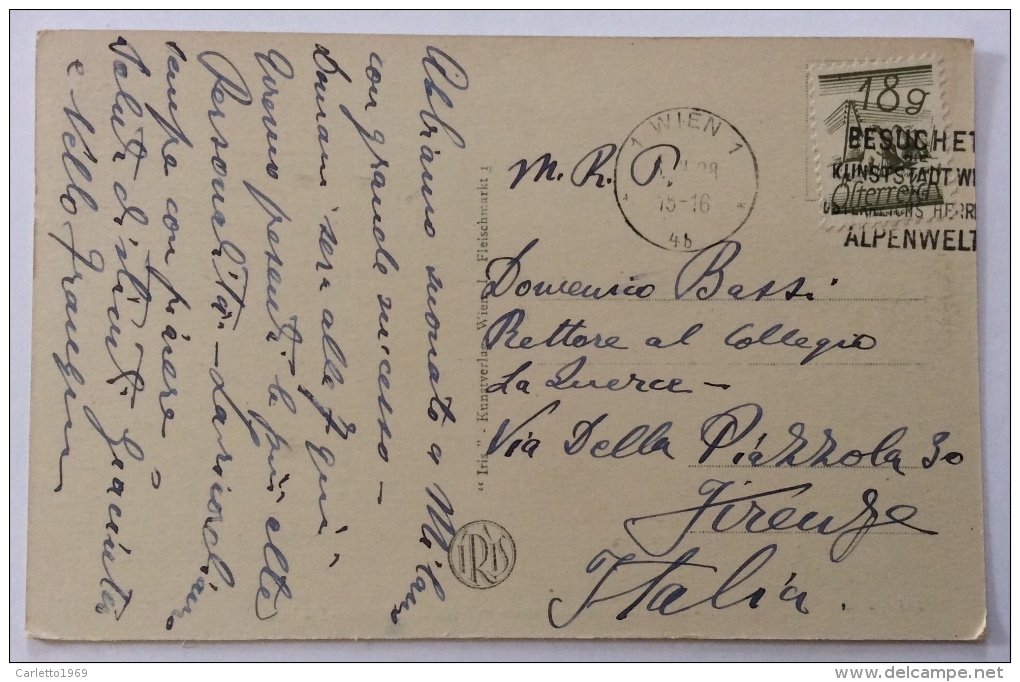 Abbiamo suonato a Milano
con grande successo -
Domani sera alle 7 qui,
Avremo presenti le più alte
Personalità - La
sempre con piacere -
Saluti distinti Giacinta
e Nello Frangini
"Iris" - Kunstverlag, Wien, 1. Fleischmarkt 1
IRIS
1 WIEN 1
28
15-16
* 4b *
18g
Österreich
BESUCHET
KUNSTSTADT WI
ÖSTERREICHS HERR
ALPENWELT
M. R. P.
Domenico Bassi
Rettore al Collegio
La Querce -
Via Della Piazzola 30
Firenze
Italia.
Carletto1969
http://www.delcampe.net